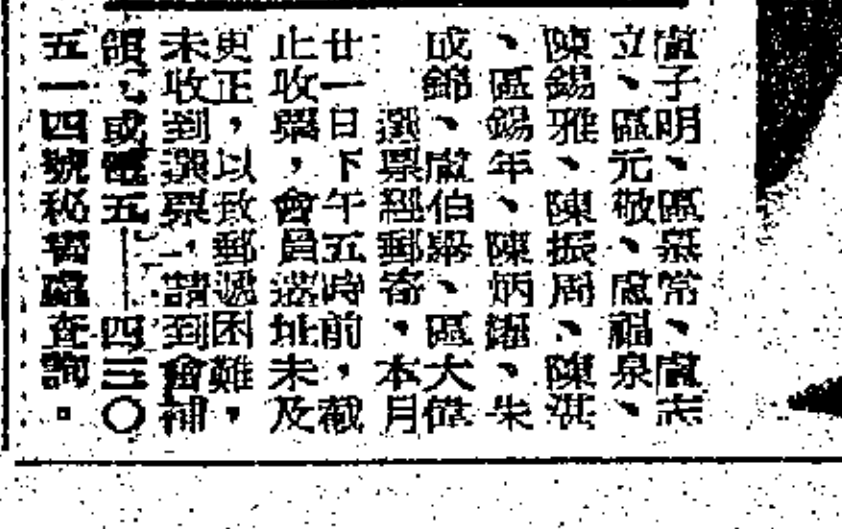 盧子明、區燊常、盧志
立、區元敬、盧福泉、
陳錫雅、陳振周、陳淇
、區錫年、陳炳耀、朱
成錦、盧伯舉、區大偉
選票經郵寄，本月
廿一日下午五時前，截
止收票，會員遷址未及
更正，以致郵遞困難，
未收到選票，請到會補
領，或電五——四三〇
五一四號秘書處查詢。